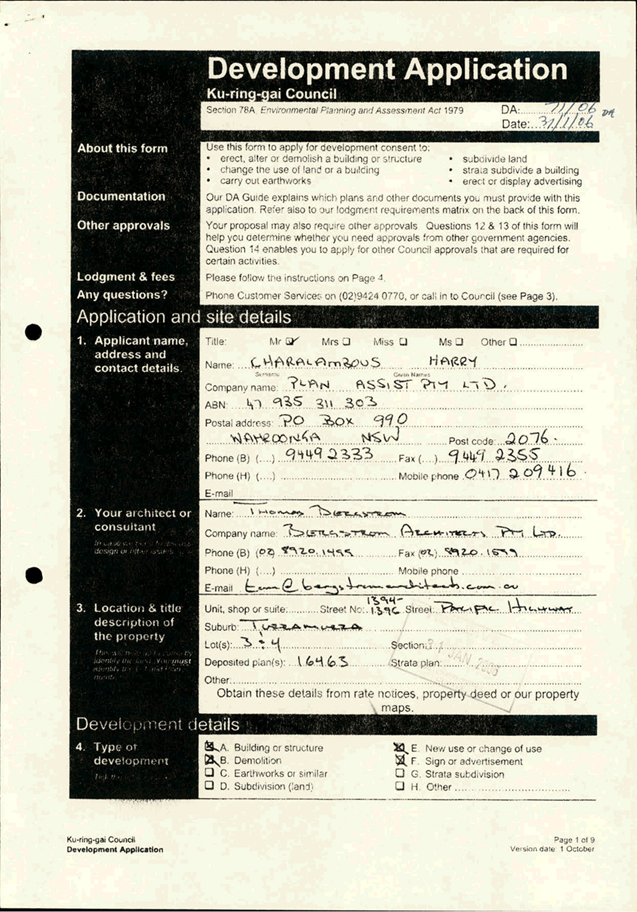 Development Application
Ku-ring-gai Council
Section 78A, Environmental Planning and Assessment Act 1979
DA: 71/06 DA
Date: 31/1/06
About this form
Use this form to apply for development consent to:
• erect, alter or demolish a building or structure
• change the use of land or a building
• carry out earthworks
• subdivide land
• strata subdivide a building
• erect or display advertising
Documentation
Our DA Guide explains which plans and other documents you must provide with this
application. Refer also to our lodgment requirements matrix on the back of this form.
Other approvals
Your proposal may also require other approvals. Questions 12 & 13 of this form will
help you determine whether you need approvals from other government agencies.
Question 14 enables you to apply for other Council approvals that are required for
certain activities.
Lodgment & fees
Please follow the instructions on Page 4.
Any questions?
Phone Customer Services on (02)9424 0770, or call in to Council (see Page 3).
Application and site details
1. Applicant name,
address and
contact details.
Title: Mr ☑ Mrs ☐ Miss ☐ Ms ☐ Other ☐
Name: CHARALAMBOUS HARRY
Surname Given Names
Company name: PLAN ASSIST PTY LTD.
ABN: 47 935 311 303
Postal address: PO BOX 990
WAHROONGA NSW Post code: 2076
Phone (B) (....) 9449 2333 Fax (...) 9449 2355
Phone (H) (....) Mobile phone 0417 209416
E-mail
2. Your architect or
consultant
Name: THOMAS BERGSTROM
Company name: BERGSTROM ARCHITECTS PTY LTD.
Phone (B) (02) 8920.1499 Fax (02) 8920.1599
Phone (H) (....) Mobile phone
E-mail tom@bergstromarchitects.com.au
3. Location & title
description of
the property
Unit, shop or suite Street No: 1394-1396 Street: PACIFIC HIGHWAY
Suburb: TURRAMURRA
Lot(s): 3 & 4 Section:
31 JAN 2006
Deposited plan(s): 16463 Strata plan:
Other
Obtain these details from rate notices, property deed or our property
maps.
Development details
4. Type of
development
☒ A. Building or structure
☒ B. Demolition
☐ C. Earthworks or similar
☐ D. Subdivision (land)
☒ E. New use or change of use
☒ F. Sign or advertisement
☐ G. Strata subdivision
☐ H. Other
Ku-ring-gai Council
Development Application
Page 1 of 9
Version date: 1 October